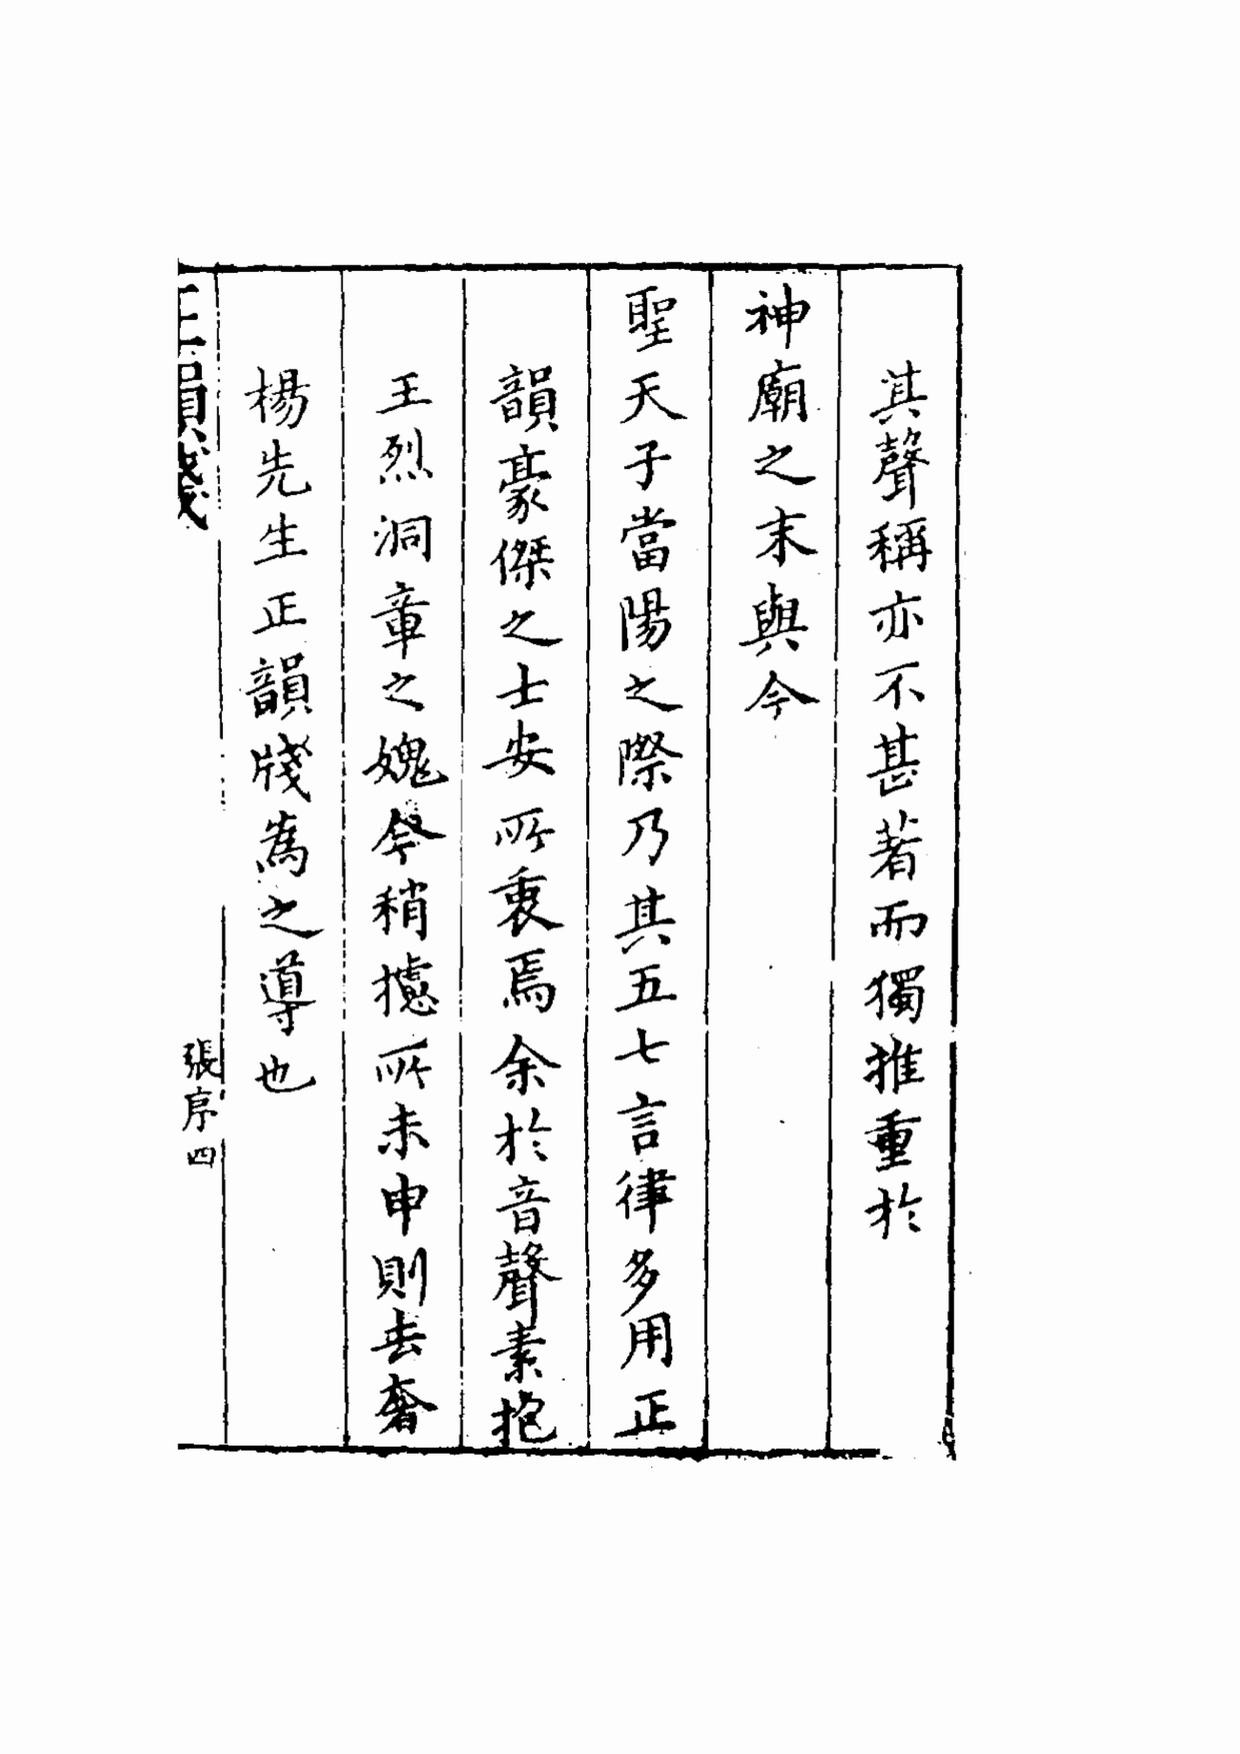 其聲稱亦不甚著而獨推重於
神廟之末與今
聖天子當陽之際乃其五七言律多用正
韻豪傑之士安所衷焉余於音聲素抱
王烈洞章之媿今稍攄所未申則去奢
楊先生正韻牋為之導也
正韻牋
張序四